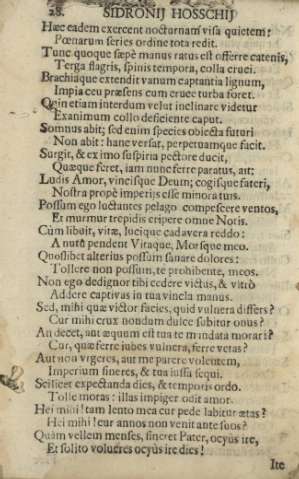 28. SIDRONIJ HOSSCHIJ
Hæc eadem exercent nocturnam visa quietem:
Pœnarum series ordine tota redit.
Tunc quoque sæpè manus ratus est offerre catenis,
Terga flagris, spinis tempora, colla cruci.
Brachiaque extendit vanum captantia lignum,
Impia ceu præsens cum cruce turba foret.
Quin etiam interdum velut inclinare videtur
Exanimum collo deficiente caput.
Somnus abit; sed enim species obiecta futuri
Non abit: hanc versat, perpetuamque facit.
Surgit, & ex imo suspiria pectore ducit,
Quæque feret, iam nunc ferre paratus, ait:
Ludis Amor, vincisque Deum; cogisque fateri,
Nostra propè imperijs esse minora tuis.
Possum ego luctantes pelago compescere ventos,
Et murmur trepidis eripere omne Notis.
Cùm libuit, vitæ, lucique cadavera reddo:
A nutu pendent Vitaque, Morsque meo.
Quoslibet alterius possum sanare dolores:
Tollere non possum, te prohibente, meos.
Non ego dedignor tibi cedere victus, & vltrò
Addere captivas in tua vincla manus.
Sed, mihi quæ victor facies, quid vulnera differs?
Cur mihi crux nondum dulce subitur onus?
An decet, aut æquum est tua te mandata morari?
Cur, quæ ferre iubes vulnera, ferre vetas?
Aut non vrgeres, aut me parere volentem,
Imperium sineres, & tua iussa sequi.
Scilicet expectanda dies, & temporis ordo.
Tolle moras: illas impiger odit amor.
Hei mihi! tam lento mea cur pede labitur ætas?
Hei mihi! cur annos non venit ante suos?
Quàm vellem menses, sineret Pater, ocyùs ire,
Et solito volucres ocyùs ire dies!
Ite